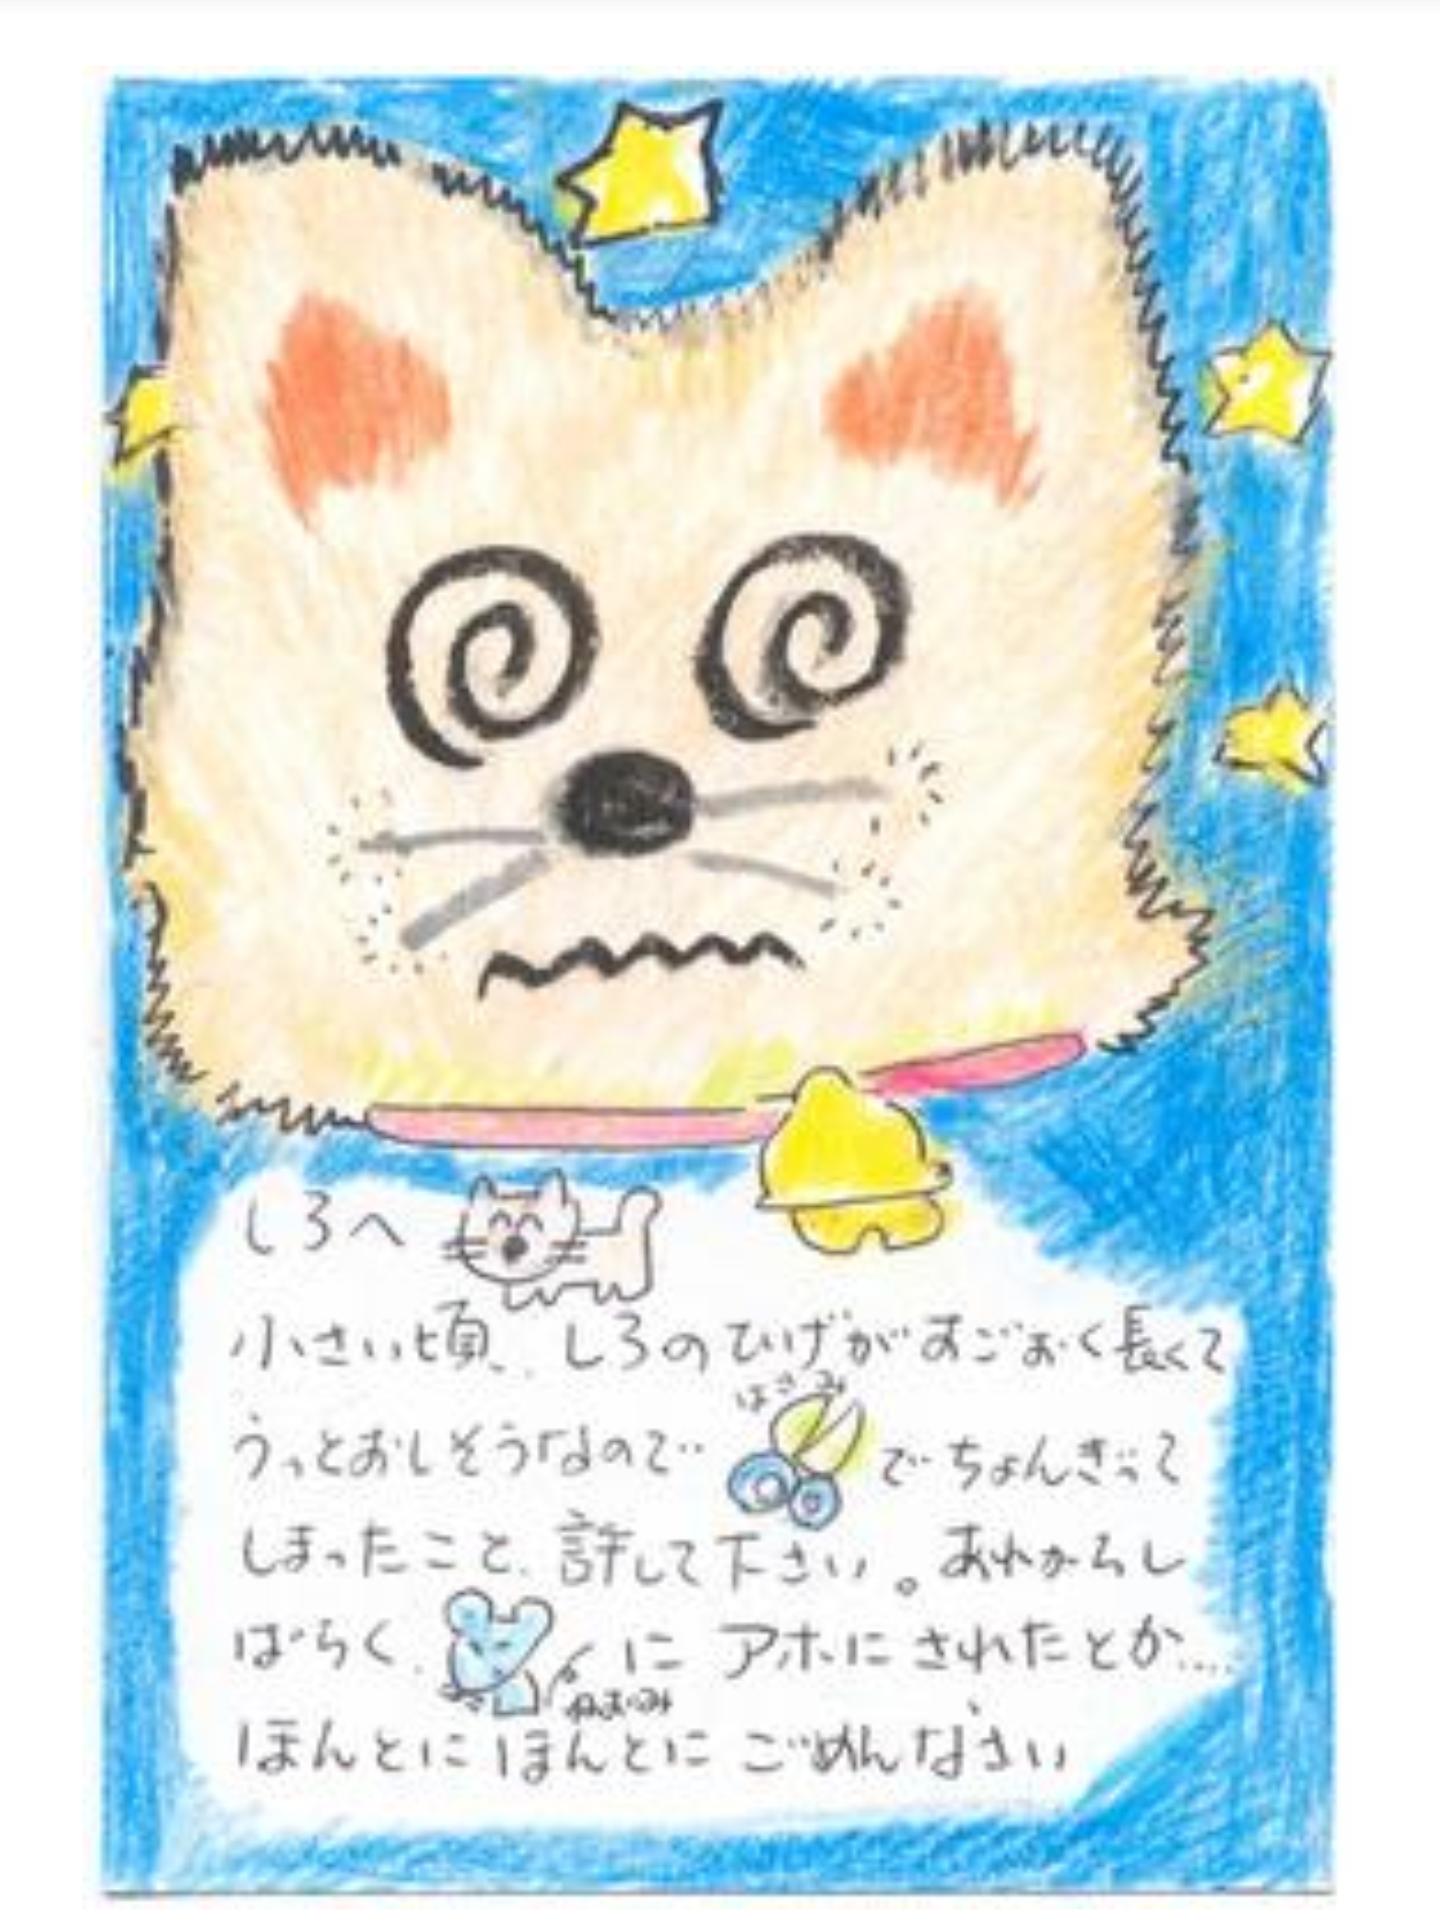 しろへ
小さい頃、しろのひげがすごぉく長くて
うっとおしそうなので はさみ でちょんぎって
しまったこと、許して下さい。あれからし
ばらく、ねずみ に アホに されたとか....
ほんとに ほんとに ごめんなさい